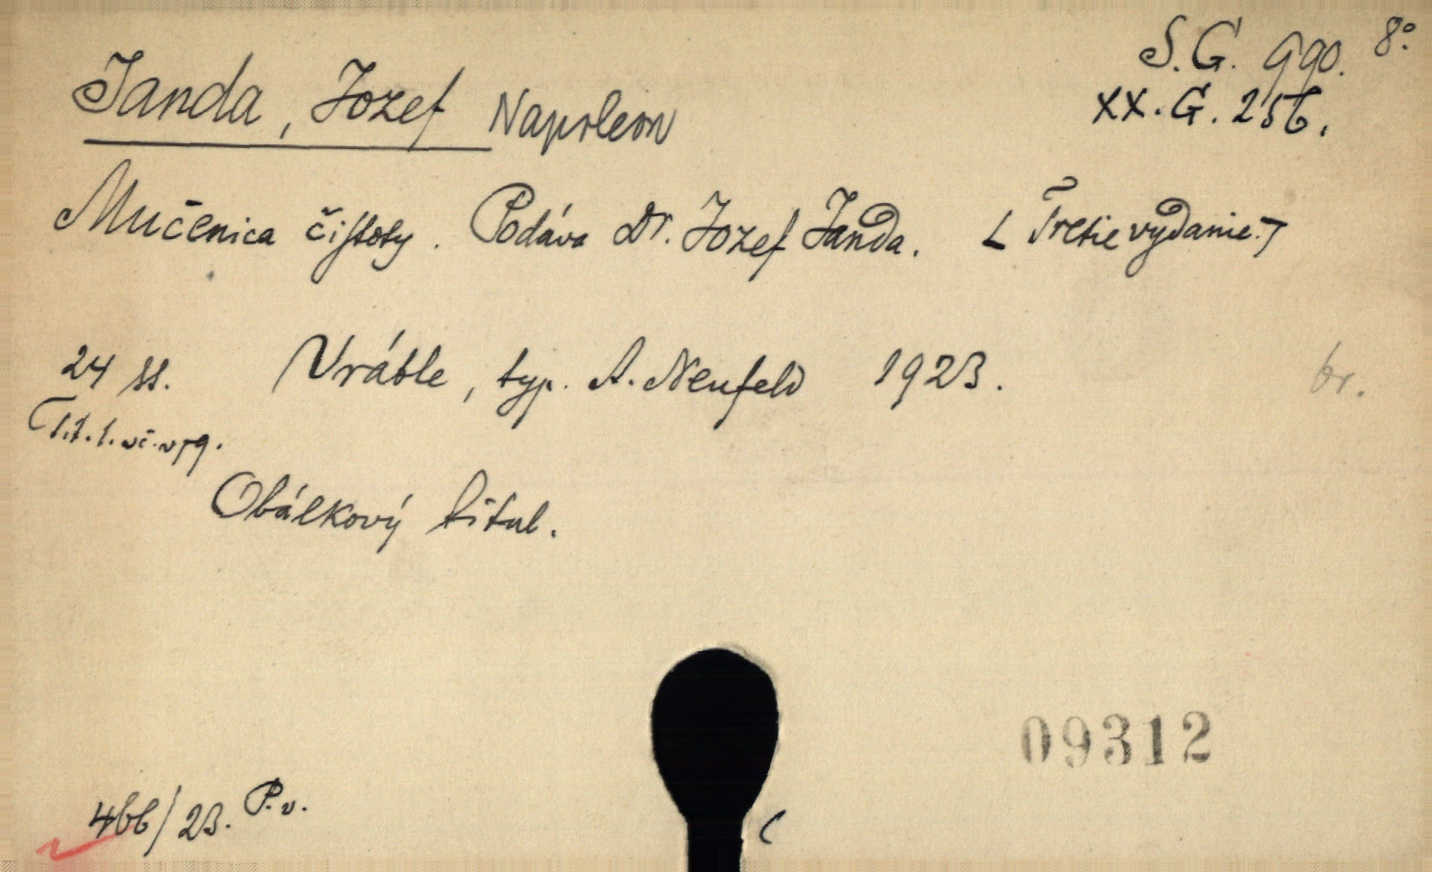 S.G. 990. 8°.
XX.G. 256.
Janda, Jozef Napoleon
Mučenica čistoty. Podáva Dr. Jozef Janda. [Tretie vydanie.]
24 ss. Vráble, typ. A. Neufeld 1923. br.
Obálkový titul.
09312
466/23. P.v.